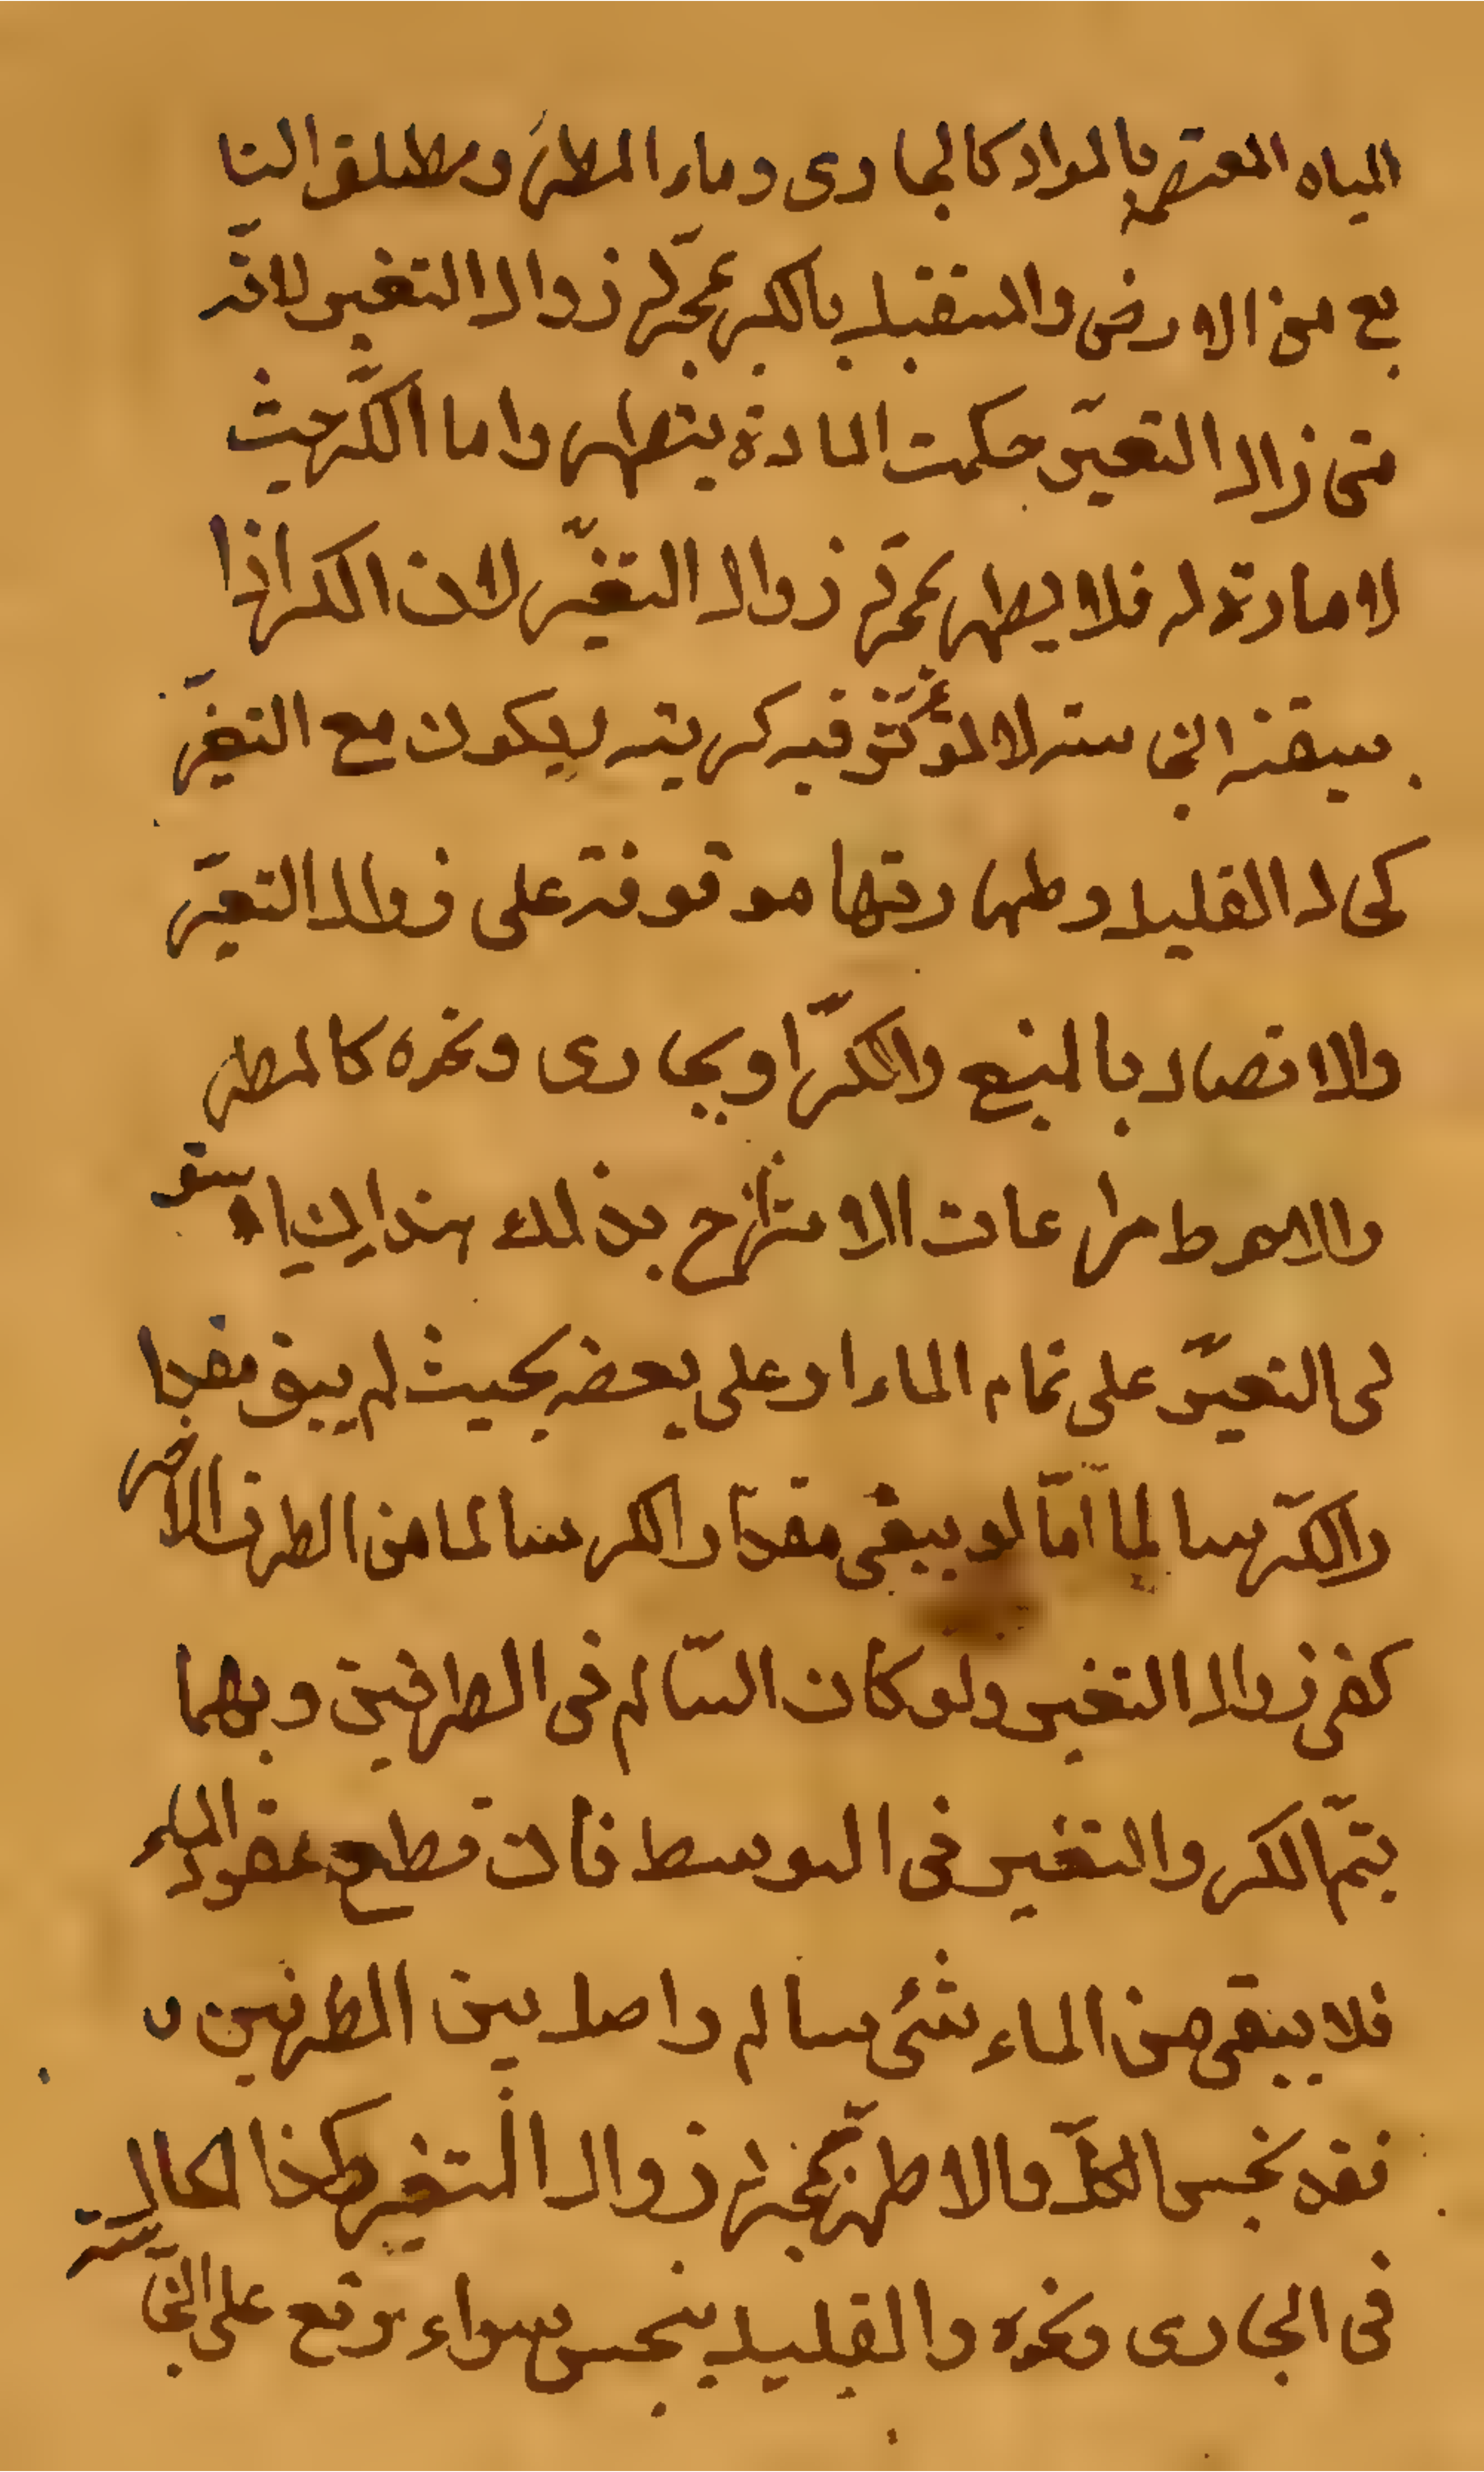 المياه المعتصمة بالمواد كالجاري وماء المطر ومطلق النا
بع من الارض والمتقبل بالكر بمجرد زوال التغير لانه
متى زال التغير حكمت المادة بتطهره واما الكر حيث
لا مادة له فلا يطهر بمجرد زوال التغير لان الكر اذا
سبقته النجاسة لا تؤثر فيه كريته ويكون مع التغير
كحال القليل وطهارتها موقوفة على زوال التغير
والاتصال بالمنبع والكر او بجاري ونحوه كالمطر
والاحوط مراعات الامتزاج بذلك هذا ان استو
لى التغير على تمام الماء او على بعضه بحيث لم يبق مقدا
ر الكر سالما اما لو يبقى مقدار الكر سالما من الطرف الاخر
كفى زوال التغير ولو كان السالم في الطرفين وبهما
يتم الكر والتغير في الوسط فان قطع عمود الماء
فلا يبقى من الماء شئ سالم واصل بين الطرفين
فقد نجس الكل والا طهر بمجرد زوال التغير وكذا الحال
في الجاري ونحوه والقليل ينجس سواء وقع على النجاسة